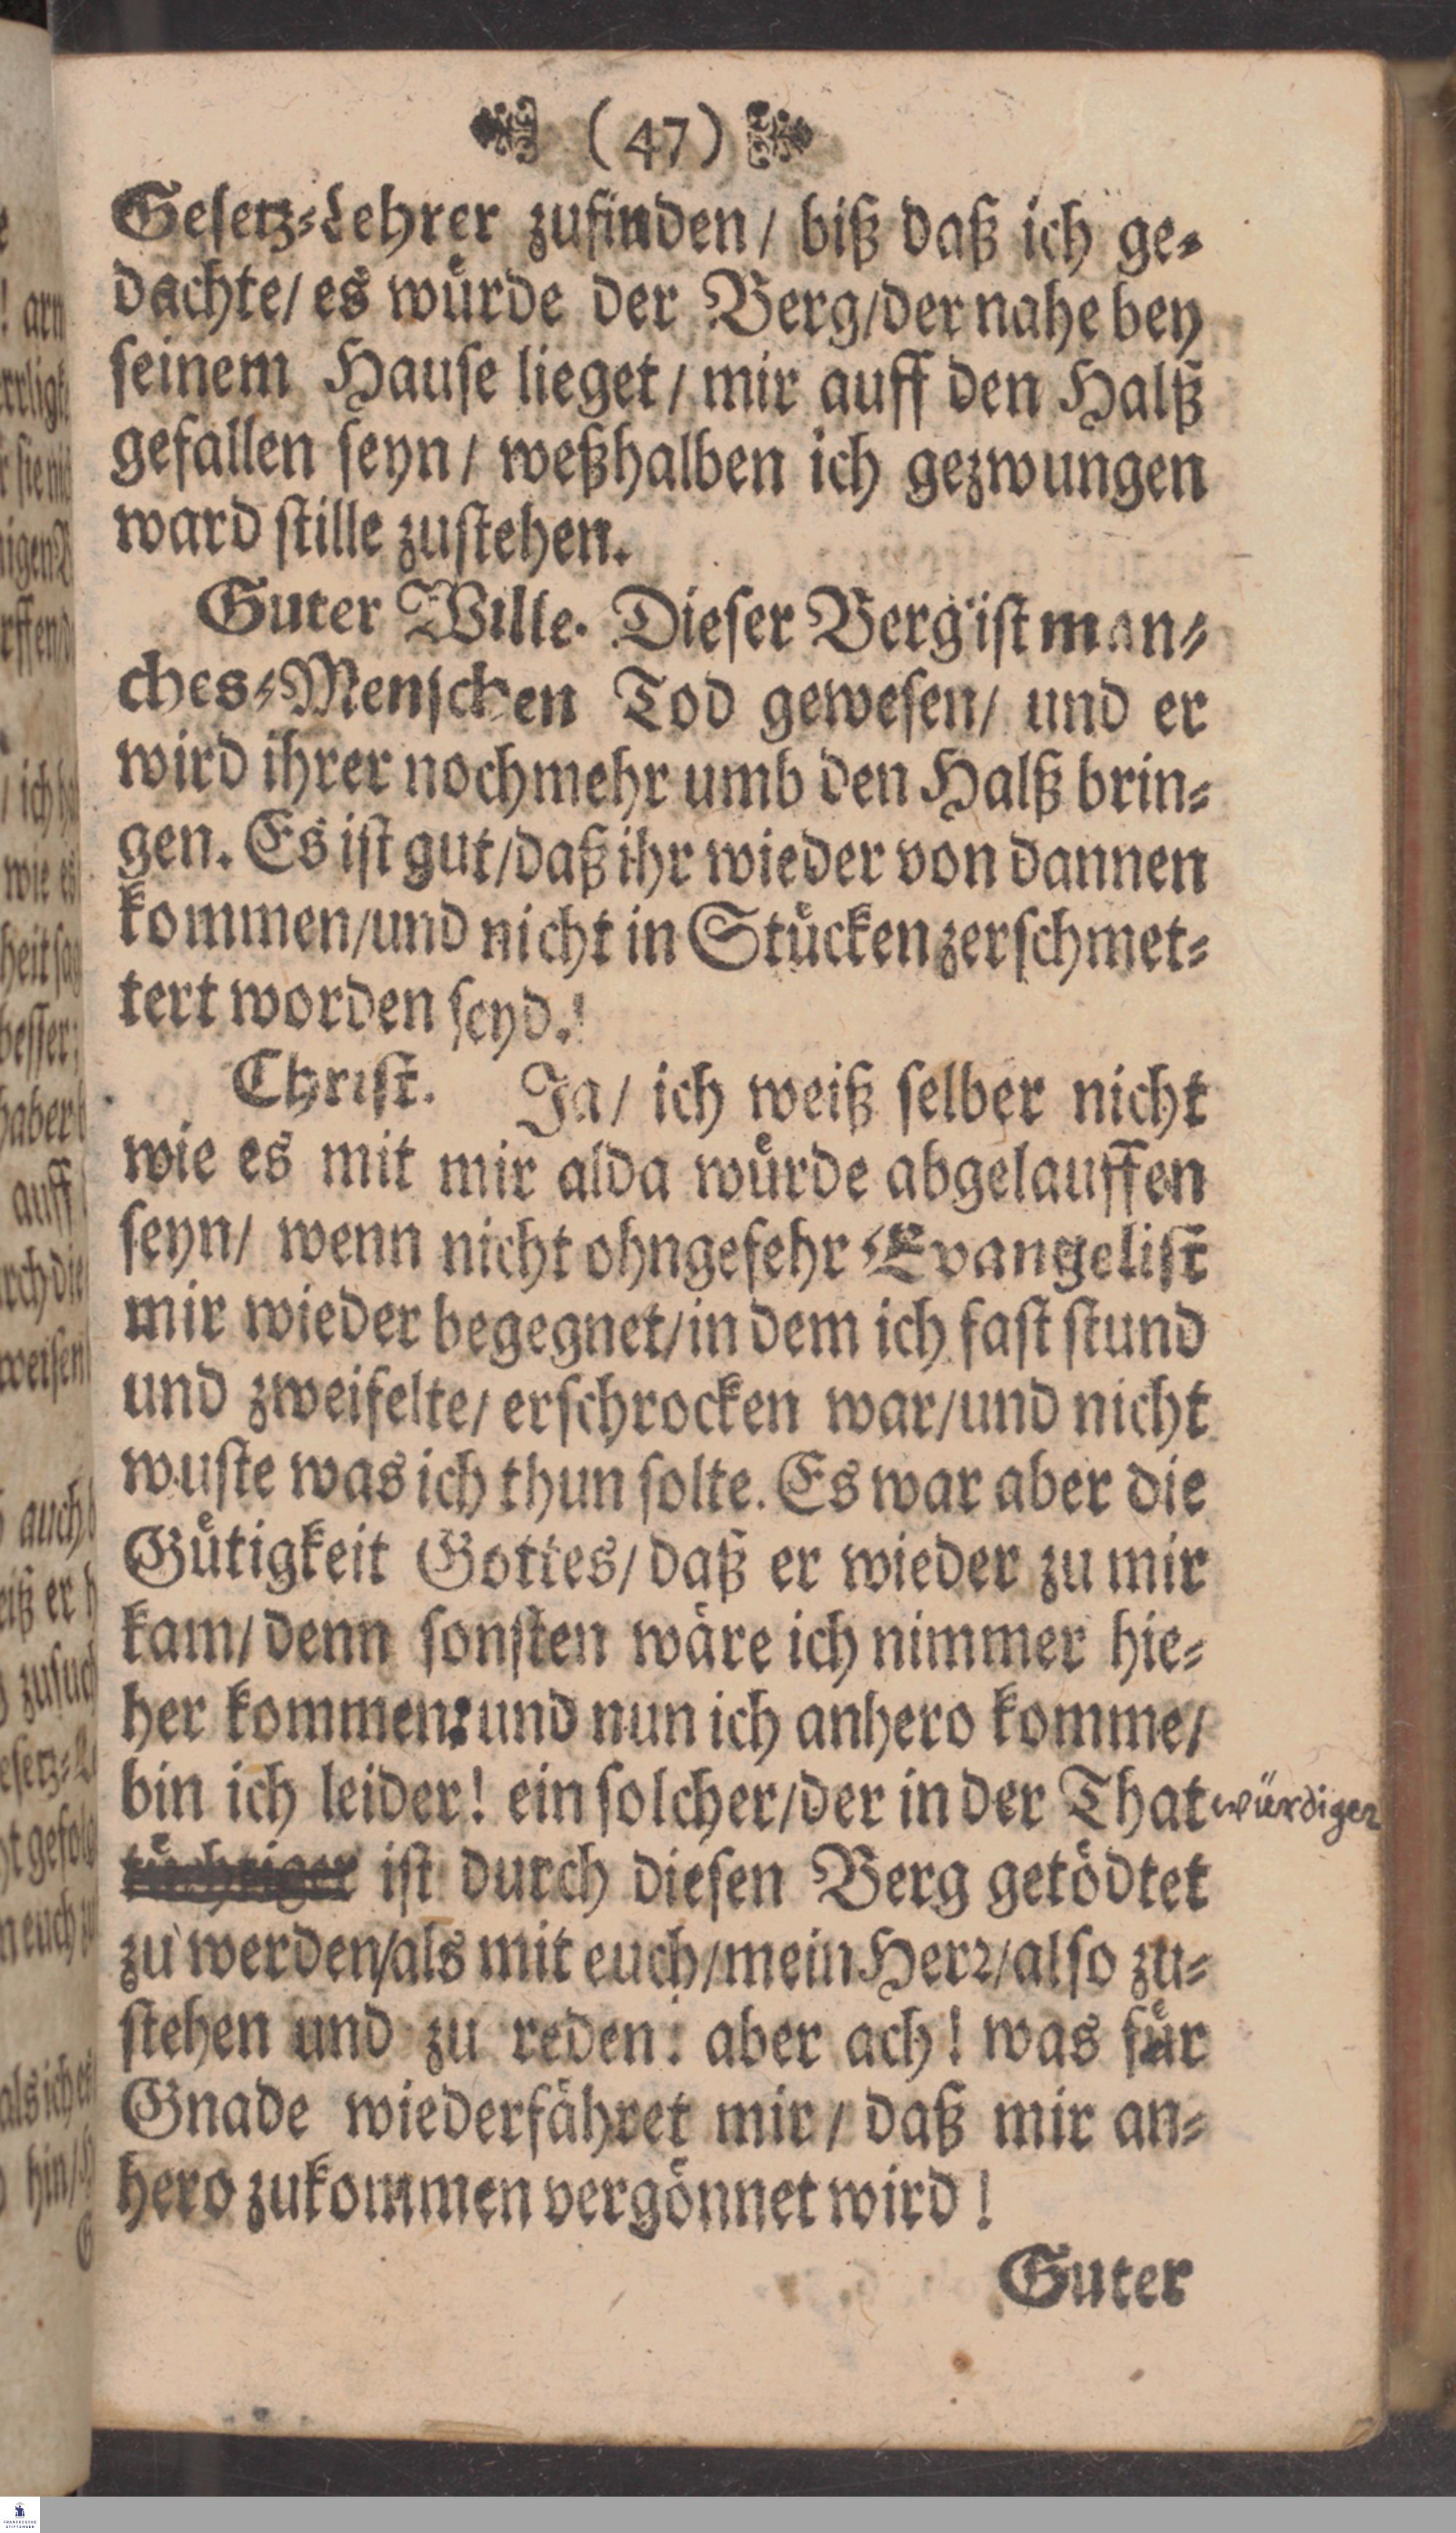 (47)
Gesetz-Lehrer zufinden/ biß daß ich ge-
dachte/ es würde der Berg/der nahe bey
seinem Hause lieget/ mir auff den Halß
gefallen seyn/ weßhalben ich gezwungen
ward stille zustehen.
Guter Wille. Dieser Berg ist man-
ches-Menschen Tod gewesen/ und er
wird ihrer noch mehr umb den Halß brin-
gen. Es ist gut/daß ihr wieder von dannen
kommen/und nicht in Stücken zerschmet-
tert worden seyd.!
Christ. Ja/ ich weiß selber nicht
wie es mit mir alda würde abgelauffen
seyn/ wenn nicht ohngefehr Evangelist
mir wieder begegnet/in dem ich fast stund
und zweifelte/ erschrocken war/und nicht
wuste was ich thun solte. Es war aber die
Gütigkeit Gottes/ daß er wieder zu mir
kam/ denn sonsten wäre ich nimmer hie-
her kommen: und nun ich anhero komme/
bin ich leider! ein solcher/der in der That würdiger
tüchtiger ist durch diesen Berg getödtet
zu werden/als mit euch/mein Herr/also zu-
stehen und zu reden: aber ach! was für
Gnade wiederfähret mir/ daß mir an-
hero zukommen vergönnet wird!
Guter